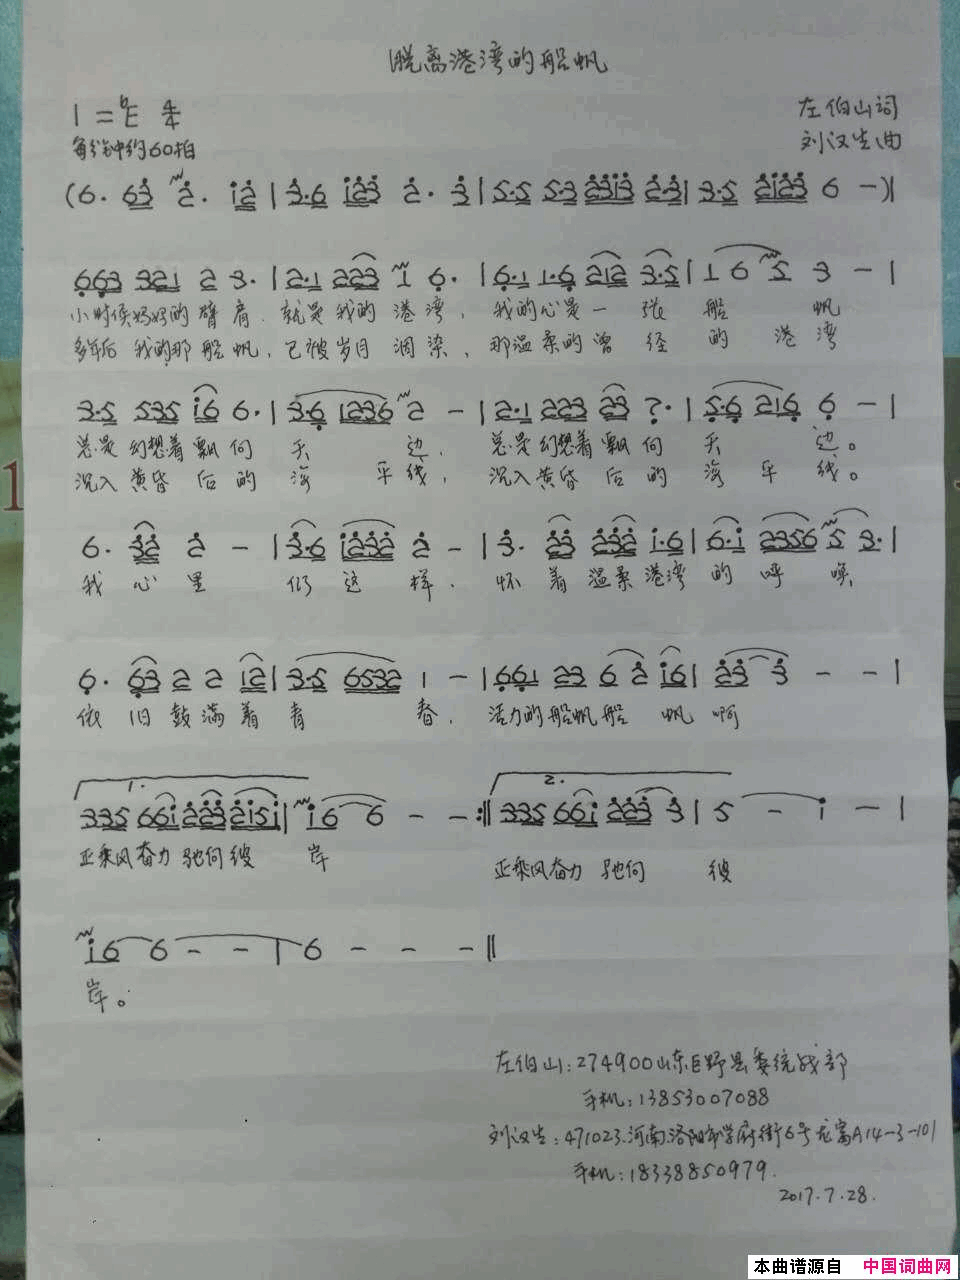 脱离港湾的船帆
1=♭E 4/4
左伯山词
每分钟约60拍
刘汉生曲
(6. 63 2. 12 | 3.6 123 2. 3 | 5.5 53 2313 2.3 | 3.5 2123 6 - )|
663 321 2 3. | 2.1 223 1 6. | 6.1 1.6 212 3.5 | 1 6 5 3 - |
小时候妈妈的臂肩.就是我的港湾,我的心是一张船帆
多年后我的那船帆,已被岁月润染,那温柔的曾经的港湾
3.5 535 i6 6. | 3.6 1236 2 - | 2.1 223 23 7. | 5.6 216 6 - |
总是幻想着飘向天边,总是幻想着飘向天边。
沉入黄昏后的海平线,沉入黄昏后的海平线。
6. 32 2 - | 3.6 1232 2 - | 3. 23 232 i.6 | 6.i 2356 5 3. |
我心里仍这样,怀着温柔港湾的呼唤
6. 63 2 2 12 | 3.5 6532 1 - | 661 23 6 2 i6 | 23 3 - - |
依旧鼓满着青春,活力的船帆船帆啊
1. 2.
335 66i 223 2i5i | i6 6 - - :|| 335 66i 223 3 | 5 - i - |
正乘风奋力驰向彼岸
正乘风奋力驰向彼
i6 6 - - | 6 - - - ||
岸。
左伯山:274900山东巨野县委统战部
手机:13853007088
刘汉生:471023.河南.洛阳市学府街6号龙富A14-3-101
手机:18338850979.
2017.7.28.
本曲谱源自 中国词曲网